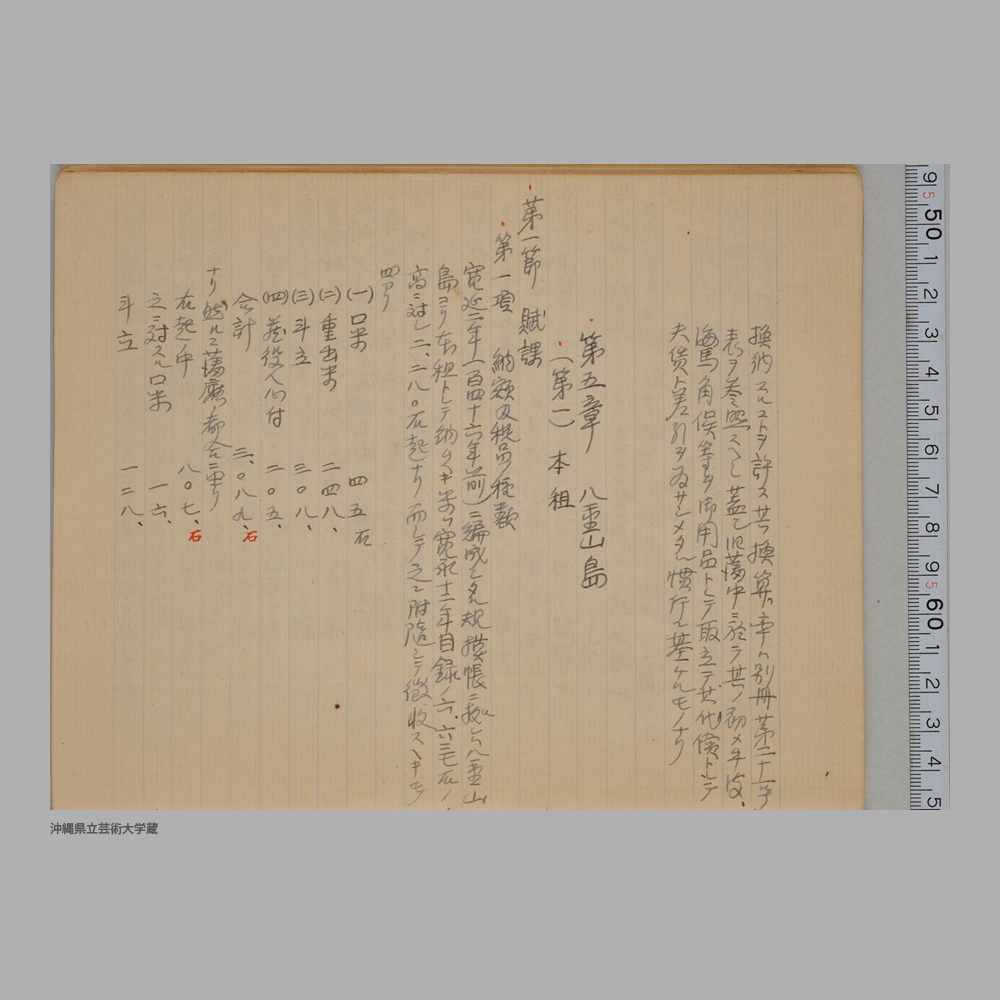 換納スルコトヲ許ス其ノ換算ノ率ハ別冊第二十一号
表ヲ参照スヘシ蓋シ旧藩中ニ於テ其ノ初メ牛皮、
海馬、角俣等ヲ御用品トシテ取立テ其ノ代償トシテ
夫賃ト差引ヲ為サシメタル慣行ニ基ケルモノナリ
第五章 八重山島
(第一) 本租
第一節 賦課
第一項 納額及税品ノ種類
寛延二年(一百四十六年前)ニ編成シタル規模帳ニ拠レハ八重山
島ヨリ本租トシテ納ムヘキ米ハ寛永十一年目録ノ六、六三七石ノ
高ニ対シ二、二八〇石起ナリ而シテ之ニ附随シテ徴収スヘキモノ
四アリ
(一) 口米 四五石
(二) 重出米 二四八、
(三) 斗立 三〇八、
(四) 蔵役人心付 二〇五、
合計 三、〇八九、石
ナリ然ルニ薩摩ノ都合ニ由リ
右起ノ中 八〇七、石
之ニ対スル口米 一六、
斗立 一二八、
9 5 50 1 2 3 4 5 6 7 8 9 5 60 1 2 3 4 5
沖縄県立芸術大学蔵